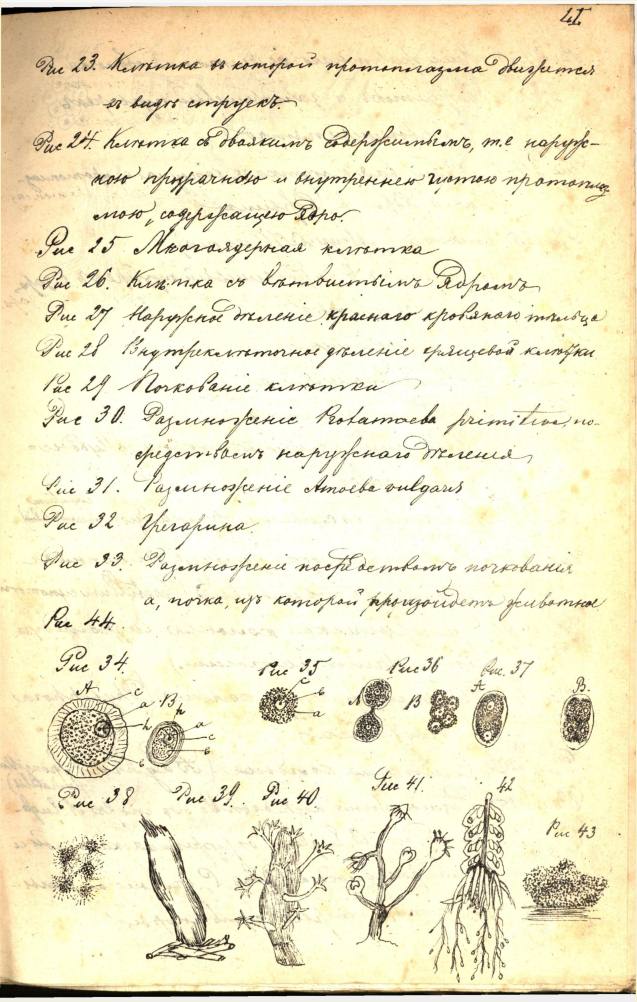 LI
Рис 23. Клѣтка въ которой протоплазма движется
въ видѣ струекъ.
Рис 24. Клѣтка съ двоякимъ содержимымъ, т.е наруж-
ною прозрачною и внутреннею густою протоплаз
мою, содержащею Ядро.
Рис 25 Многоядерная клѣтка
Рис 26. Клѣтка съ вѣтвистымъ Ядромъ
Рис 27 Наружное дѣленіе краснаго кровяного тѣльца
Рис 28 Внутреклѣточное дѣленіе хрящевой клѣтки
Рис 29 Почкованіе клѣтки
Рис 30. Размноженіе Protamoeba primitiva, по-
средствомъ наружнаго дѣленія
Рис 31. Размноженіе Amoeba vulgaris
Рис 32 Грегарина.
Рис 33. Размноженіе посредствомъ почкованія
а, почка, изъ которой произойдетъ животное
Рис 44.
Рис 34. Рис 35 Рис 36 Рис. 37
A c a h b B h a c b c b a A B A B.
Рис 38 Рис 39. Рис 40. Рис 41. 42 Рис 43